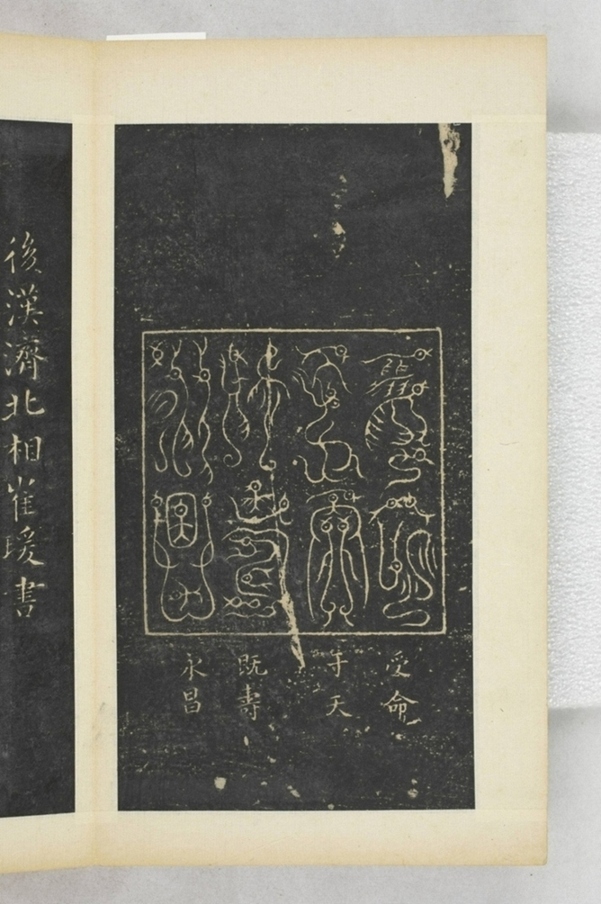 受命
于天
既壽
永昌
後漢濟北相崔瑗書